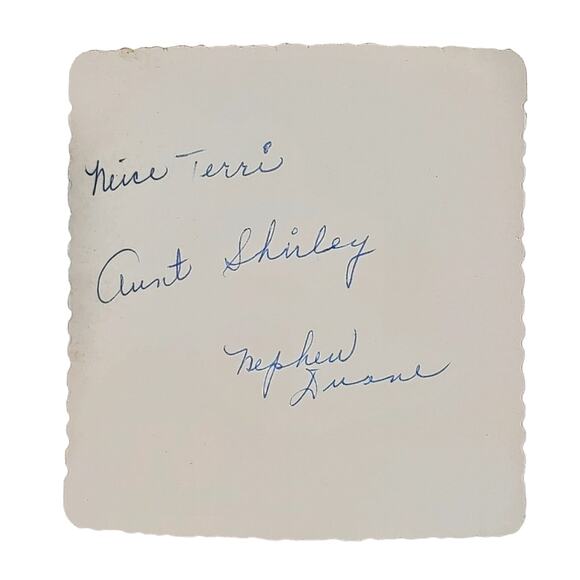 Neice Terri
Aunt Shirley
Nephew
Duane